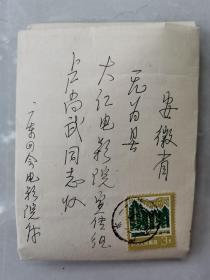 安徽省
无为县
大仁电影院宣传组
卢尚武同志收
广东四会电影院付